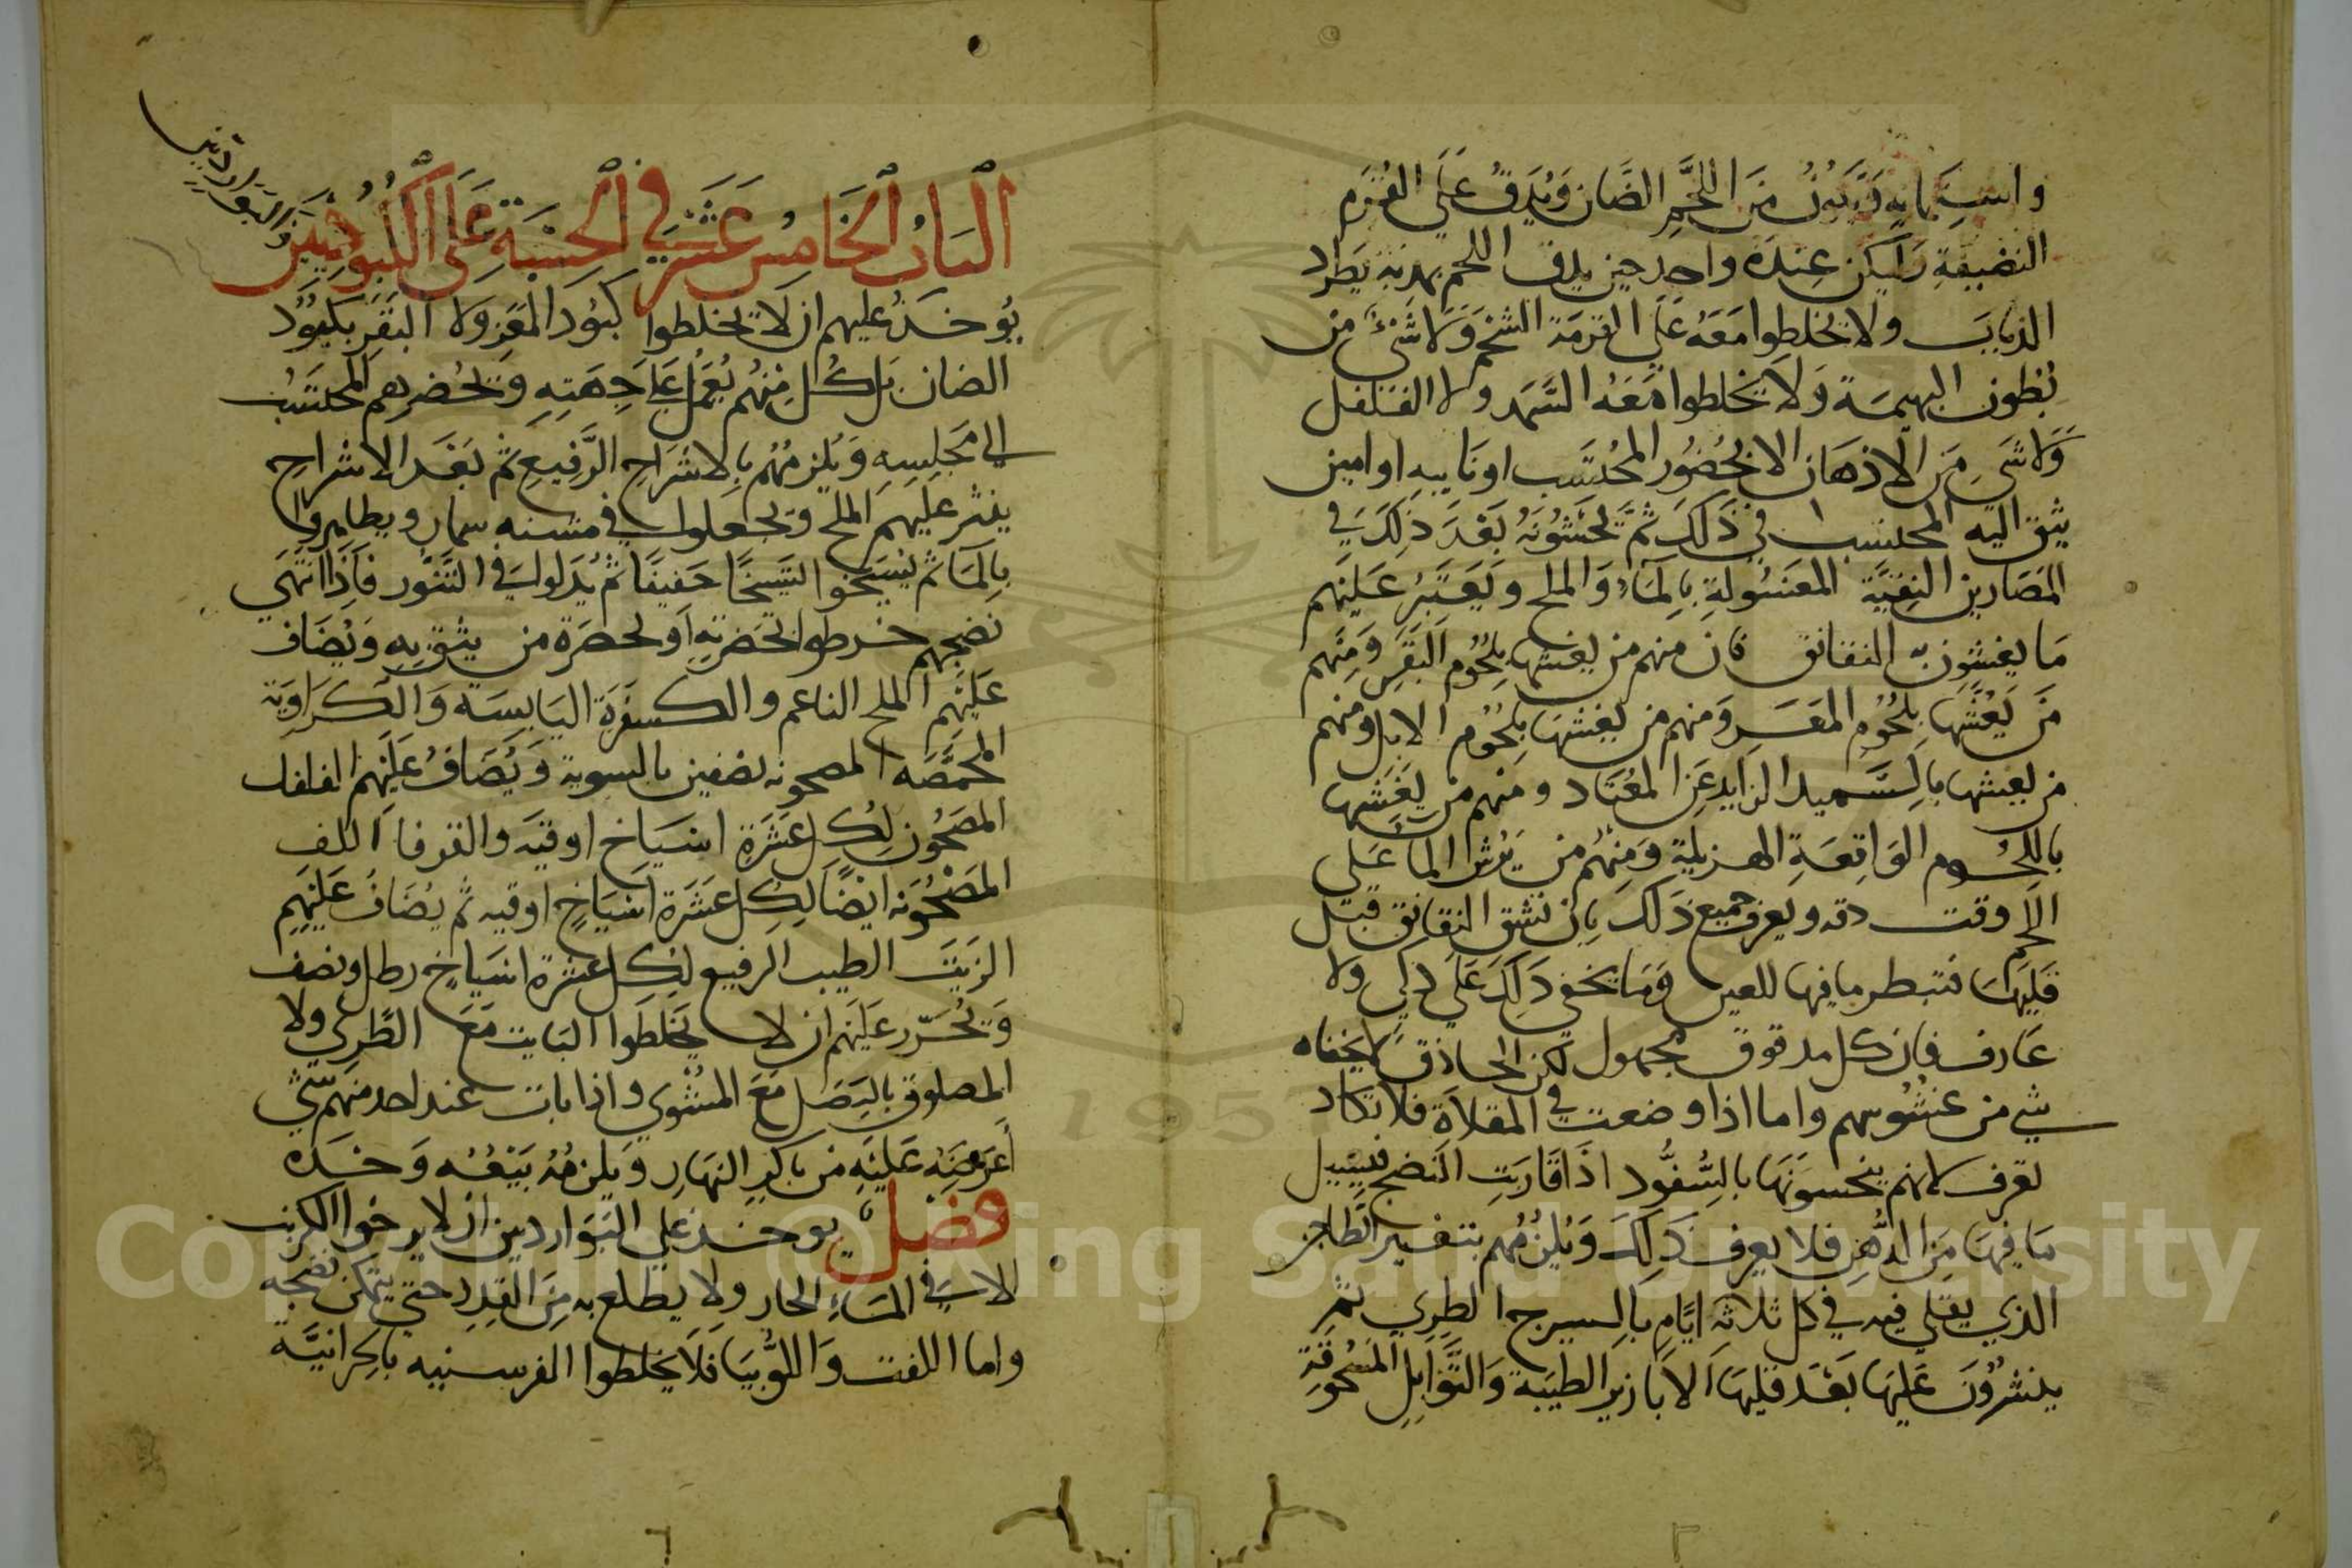 واستيمانه ويكون من اللحم الضان ويدق على القرم
النضيفة وليكن عنده واحد حين يدق اللحم بمدبه يطرد
الذباب ولا يخلطوا معه على القرمة الشحم ولا شيء من
بطون البهيمة ولا يخلطوا معه السمد ولا الفلفل
ولا شي من الاذهان الا بحضور المحتسب او نايبه او امين
يثق اليه المحتسب في ذلك ثم تحشونه بعد ذلك في
المصارين النقية المغسولة بالماء والملح ويعتبر عليهم
ما يغشون به النقانق فان منهم من يغشها بلحوم البقر ومنهم
من يغشها بلحوم المعز ومنهم من يغشها بلحوم الابل ومنهم
من يغشها بالسميد الزايد عن المعتاد ومنهم من يغشها
باللحوم الواقعة الهزيلة ومنهم من يرش الماء على
اللحم وقت دقه ويعرف جميع ذلك بان تشق النقانق قبل
قليها فتبطر ما فيها للعين وما يخفى ذلك على ذكي ولا
عارف فان كل مدقوق مجهول لكن الحاذق لا يخفاه
شي من غشوشهم واما اذا وضعت في المقلاة فلا تكاد
تعرف لانهم ينخسونها بالسفود اذا قاربت النضج فيسيل
ما فيها من الدهن فلا يعرف ذلك ويلزمهم بتغيير الطاجن
الذي يقلي فيه في كل ثلاثة ايام بالسيرج الطري ثم
ينثرون عليها بعد قليها الابازير الطيبة والتوابل المسحوقة
الباب الخامس عشر في الحسبة على الكبوديين
والبواردين
يوخد عليهم ان لا تخلطوا كبود المعز ولا البقر بكبود
الضان بل كل منهم يعمل على جهته ويحضرهم المحتسب
الى مجلسه ويلزمهم بالاشراح الرفيع ثم بعد الاشراح
ينثر عليهم الملح ويجعلوا في مشنه سمار ويطايروا
بالماء ثم يسيخوا التسيخا خفيفا ثم يدلوا في التنور فاذا انتهى
نضجهم خرطوا بحضرته او لحضرة من يثق به ويضاف
عليهم الملح الناعم والكسفرة اليابسة والكراوية
المحمصه المصحونه نصفين بالسوية ويضاف عليهم الفلفل
المصحون لكل عشرة اسياخ اوقية والقرفا اللف
المصحونه ايضا لكل عشرة اسياخ اوقيه ثم يضاف عليهم
الزيت الطيب الرفيع لكل عشرة اسياخ رطل ونصف
ويحرر عليهم ان لا يخلطوا البايت مع الطري ولا
المصلوق بالبصل مع المشوي واذا بات عند احد منهم شي
اعرضه عليه من باكر النهار ويلزمه بيعه وحده
فصل يوخد على البواردين ان لا يرخوا الكرنب
الا في الماء الحار ولا يطلع به من القدر حتى يتمكن نضجه
واما اللفت واللوبيا فلا يخلطوا الفرسنيه باكرانية
Copyright © King Saud University
1957